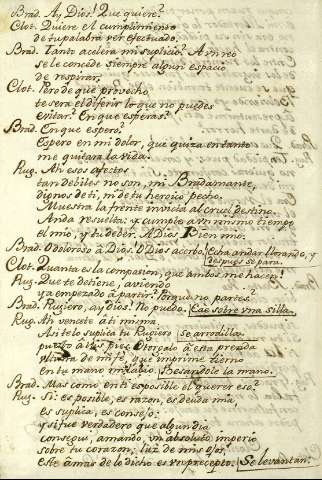 Brad. Ay Dios! Que quiere?
Clot. Quiere el cumplimiento
de tu palabra ver efectuado.
Brad. Tanto acelera mi suplicio? A un reo
se le concede siempre algun espacio
de respirar.
Clot. Pero de que provecho
te sera el diferir lo que no puedes
evitar? En que esperas?
Brad. En que espero?
Espero en mi dolor, que quiza en tanto
me quitara la vida.
Rug. Ah esos afectos
tan debiles no son, mi Bradamante,
dignos de ti, ni de tu heroico pecho.
Muestra la frente invicta al cruel destino.
Anda resuelta: y cumple a un mismo tiempo
el mio, y tu deber. A Dios Bien mio.
Brad. O doloroso à Dios! O Dios acerbo! Echa andar llorando, y
despues se para.
Clot. Quanta es la compasion, que ambos me hacen!
Rug. Que te detiene, aviendo
ya empezado à partir? Porque no partes
Brad. Rugiero, ay dios! No puedo. Cae sobre vna silla.
Rug. Ah vencete à ti misma.
Asi te lo suplica tu Rugiero Se arrodilla.
puesto à tus pies. Otorgalo à esta prenda
de mi fe, que imprime tierno
en tu mano mi labio. Besandole la mano.
Brad. Mas como en ti es posible el querer eso?
Rug. Si: es posible, es razon, es deuda mia,
es suplica, es consejo:
y si fue verdadero que algun dia
consegui, amando, un absoluto imperio
sobre tu corazon; luz de mis ojos,
este à mas de lo dicho es precepto. Se levantan.